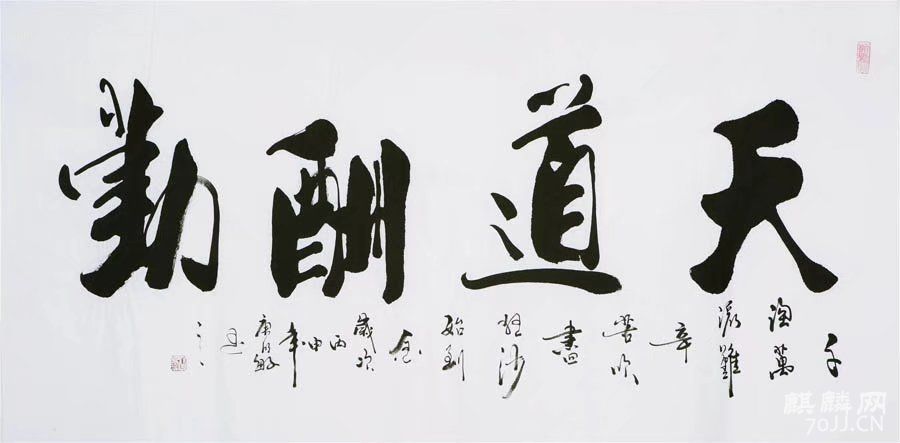 天道酬勤
千
淘萬
漉雖
辛
苦吹
盡
狂沙
始到
金
歲次
丙
申
年
麒麟网
70JJ.CN